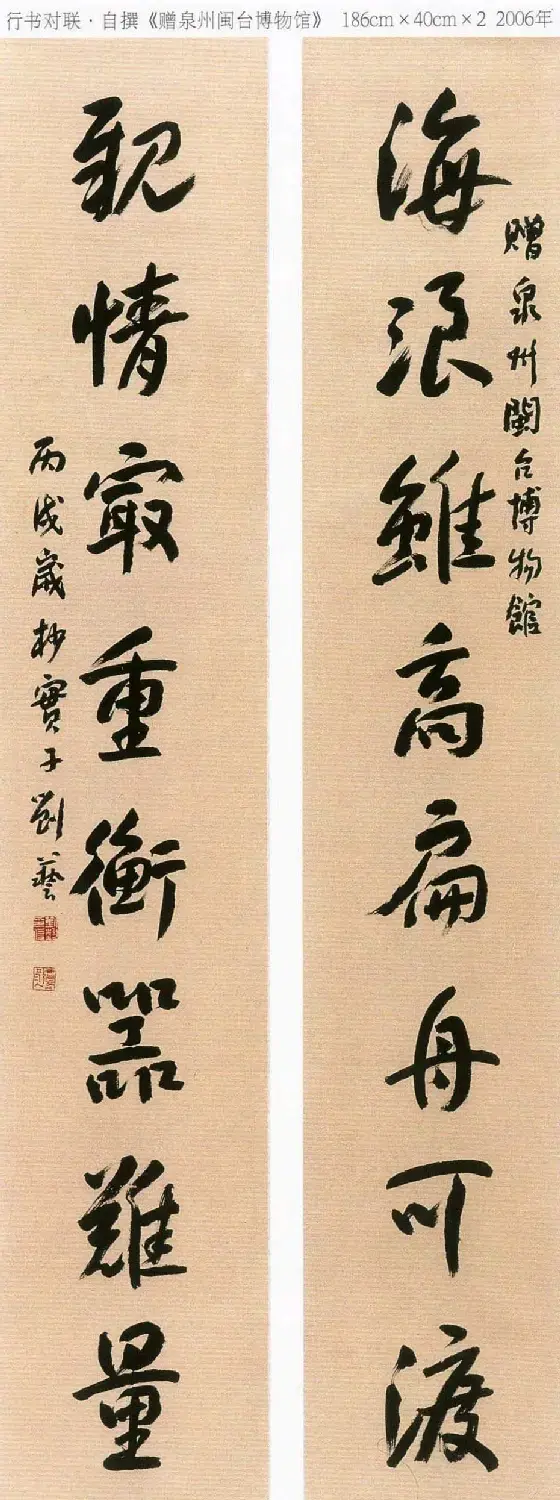 行书对联·自撰《赠泉州闽台博物馆》 186cm×40cm×2 2006年
贈泉州閩台博物館
海浪雖高扁舟可渡
親情㝡重衡器難量
丙戌歲杪實子劉藝